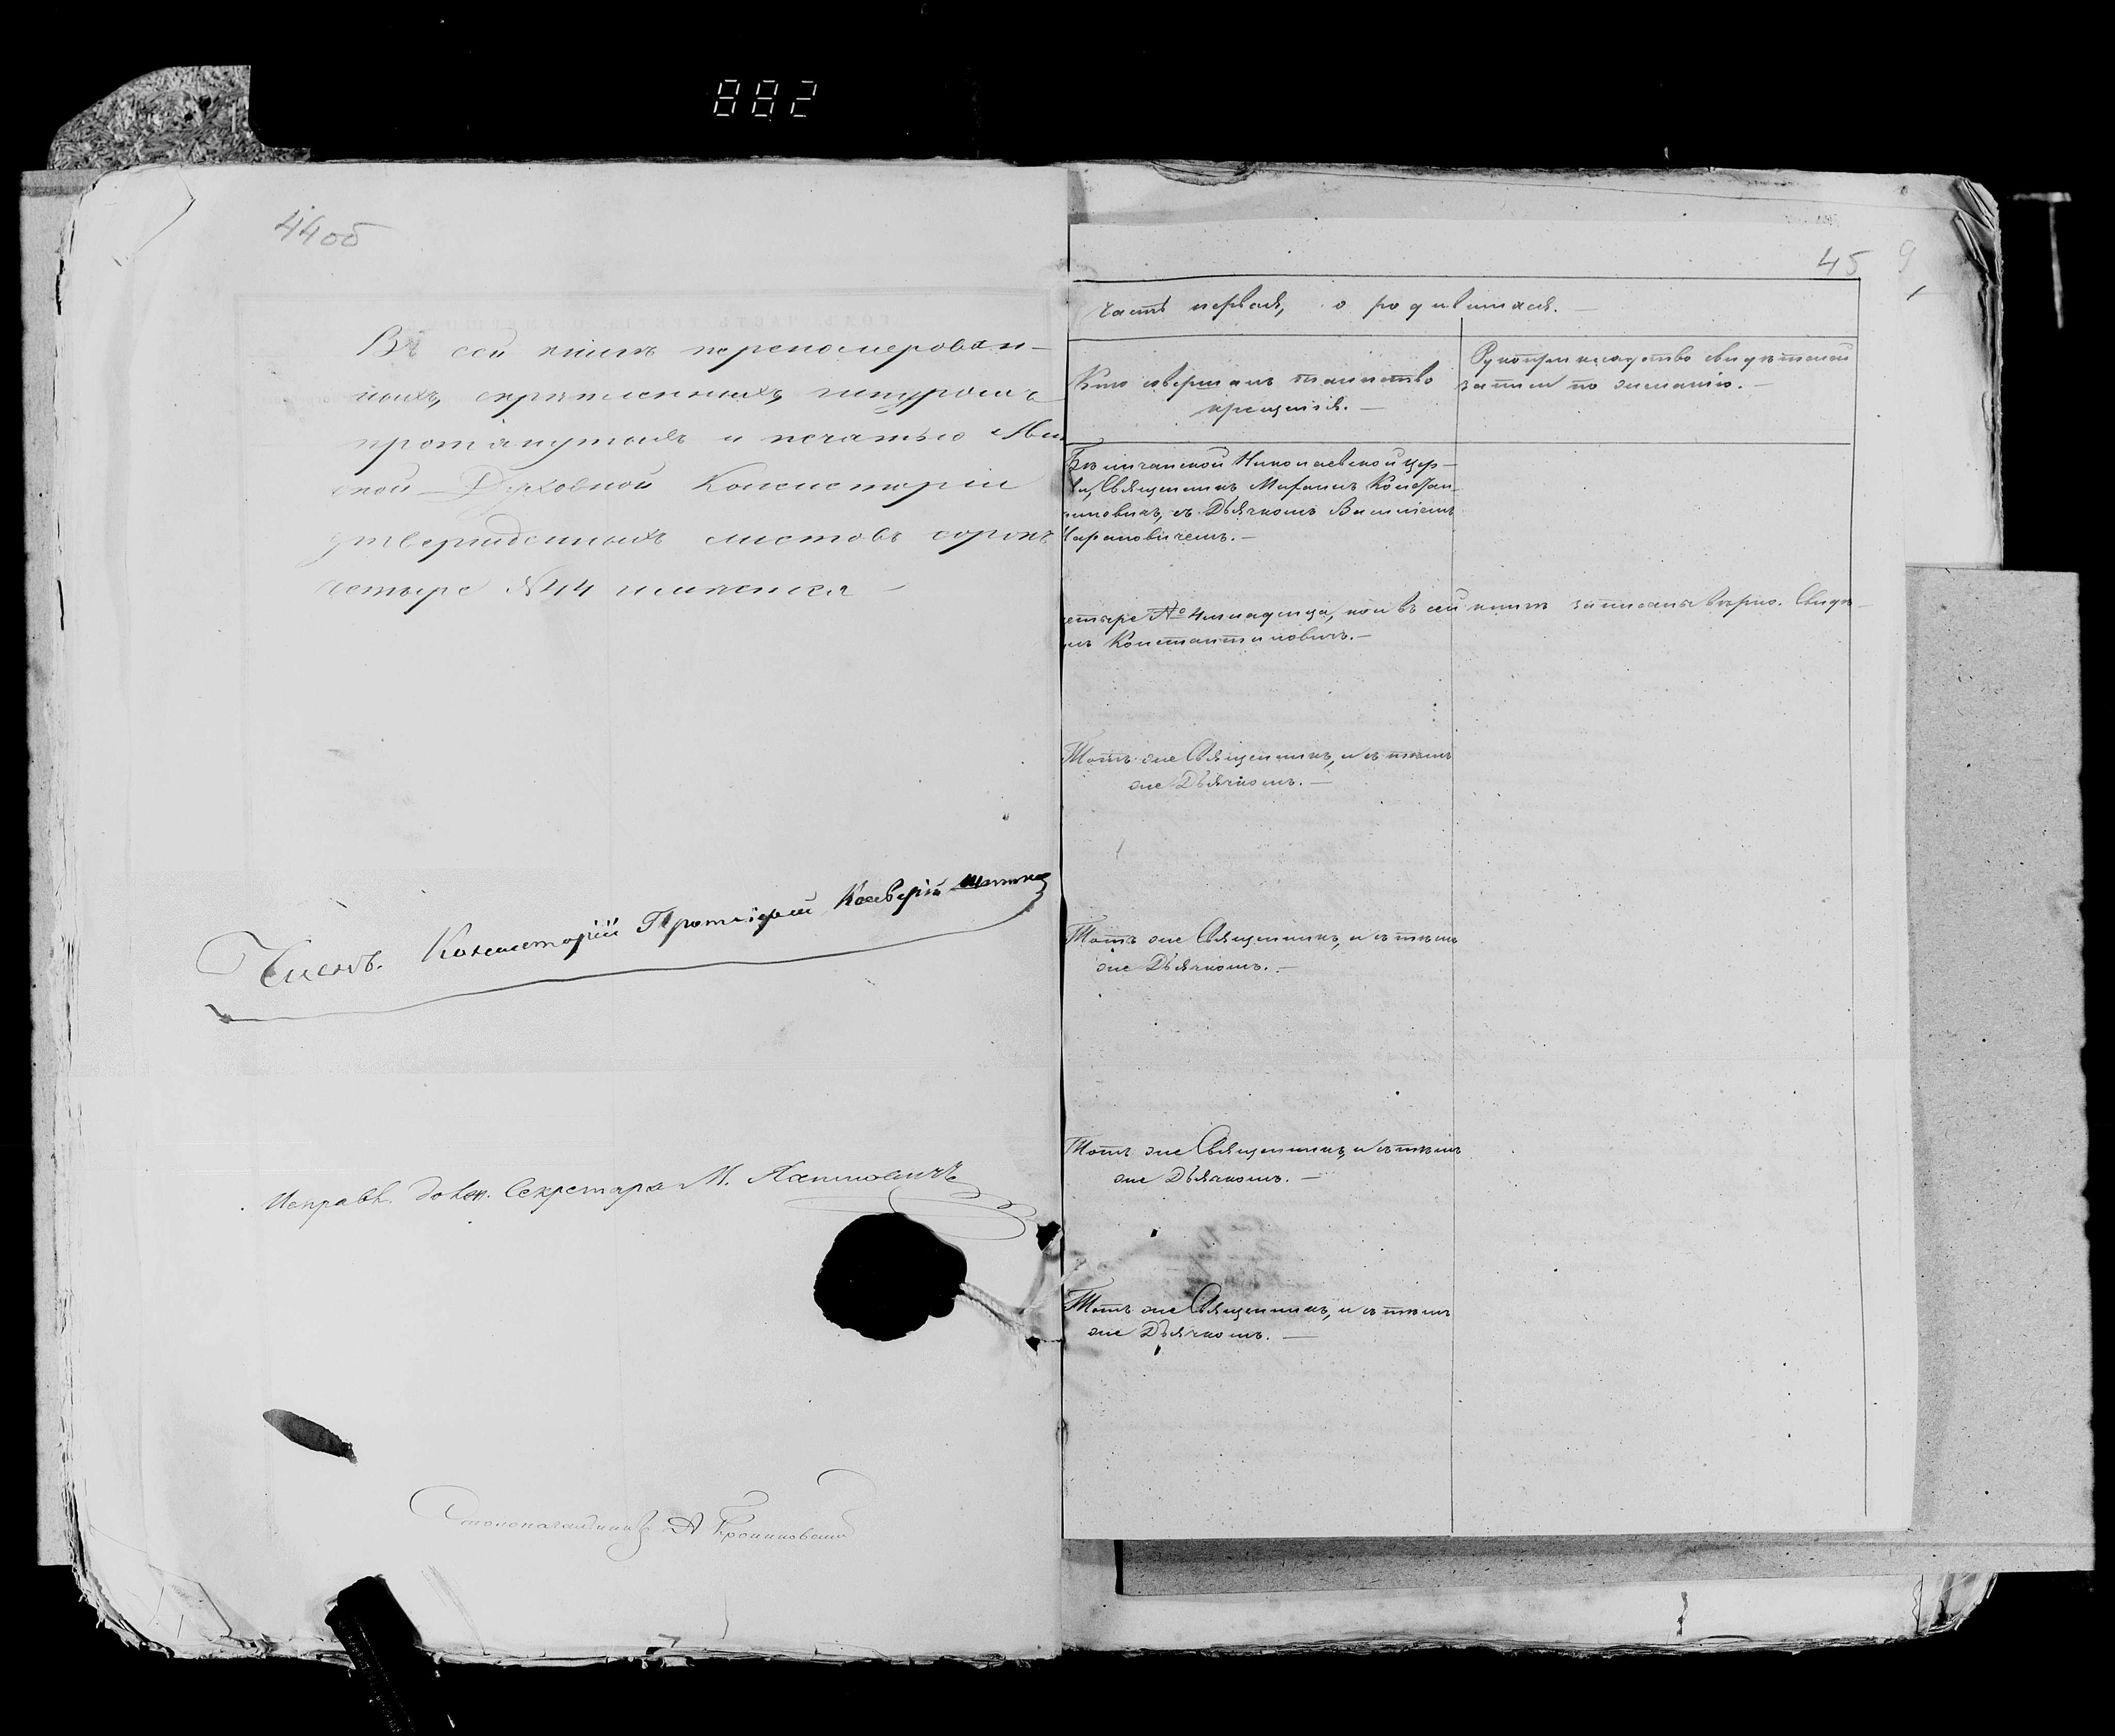 882
44об
Въ сей книгѣ перенумерован-
ныхъ, скрѣпленныхъ, шнуромъ
протянутыхъ и печатью Мин
ской Духовной Консисторіи
утвержденныхъ листовъ сорокъ
четыре №44 имѣется
Членъ Консисторіи Протоіерей
Исправл. долж. Секретаря М.
Столоначальникъ А
45
Часть первая, о родившихся.
Кто совершалъ таинство
крещенія.
Рукоприкладство свидѣтелей
записи по желанію.
Николаевской цер-
кви, Священникъ Константи-
новичъ, съ Дьячкомъ
етыре № 4 младенца, кои въ сей книгѣ записаны вѣрно. Свидѣ-
Константиновичъ.
Тотъ же Священникъ, и съ тѣмъ
же Дьячкомъ.
Тотъ же Священникъ, и съ тѣмъ
же Дьячкомъ.
Тотъ же Священникъ, и съ тѣмъ
же Дьячкомъ.
Тотъ же Священникъ, и съ тѣмъ
же Дьячкомъ.